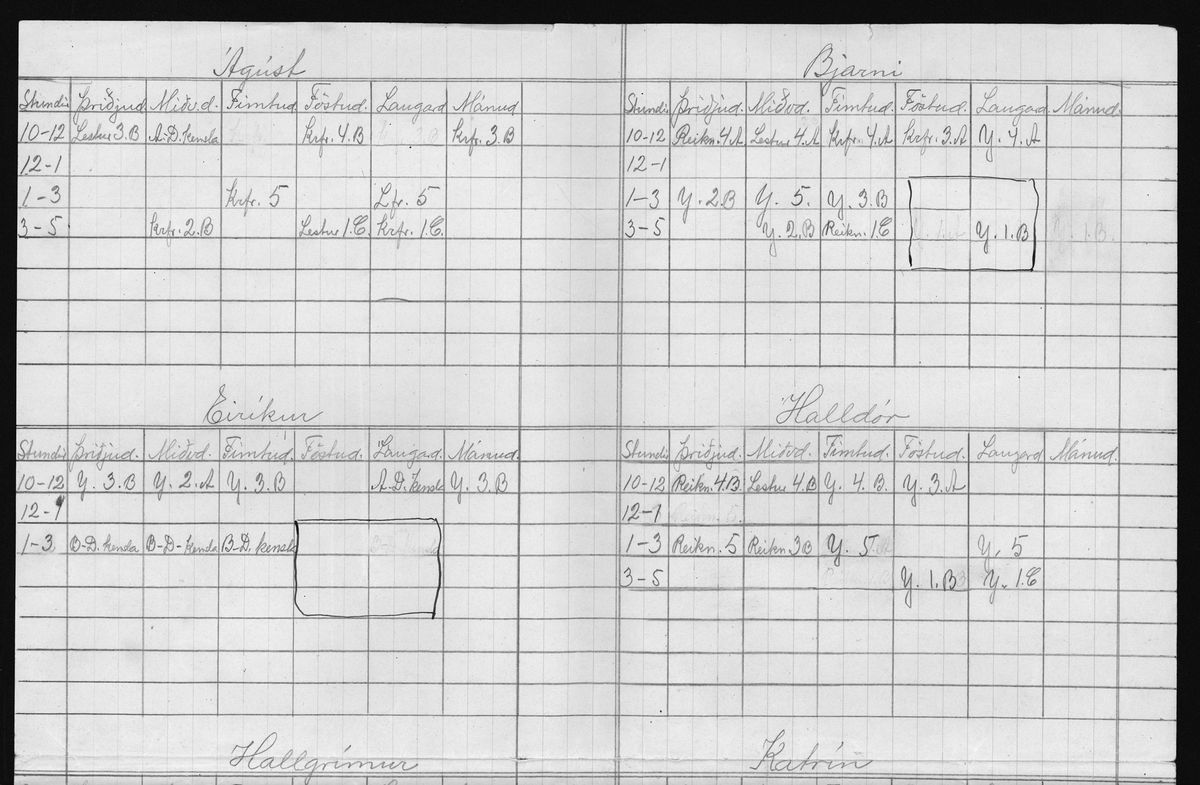 Ágúst
Stundir Þriðjud. Miðv.d. Fimtud. Föstud. Laugard. Mánud.
10-12 Lestur 3.B A-D. kensla Krfr. 4.B Krfr. 3.B
12-1
1-3 Krfr. 5 Lfr. 5
3-5 Krfr. 2.B Lestur 1.C Krfr. 1.C
Bjarni
Stundir Þriðjud. Miðvd. Fimtud. Föstud. Laugad. Mánud.
10-12 Reikn. 4.A Lestur 4.A Krfr. 4.A Krfr. 3.A Y. 4.A
12-1
1-3 Y. 2.B Y. 5. Y. 3.B
3-5 Y. 2.B Reikn. 1.C Y. 1.B Y. 1.B.
Eiríkur
Stundir Þriðjud. Miðvd. Fimtud. Föstud. Laugad. Mánud.
10-12 Y. 3.B Y. 2.A Y. 3.B A-D. kensla Y. 3.B
12-1
1-3 B-D. kensla B-D-kensla B-D. kensla
Halldór
Stundir Þriðjud. Miðvd. Fimtud. Föstud. Laugard Mánud.
10-12 Reikn. 4.B. Lestur 4.B Y. 4.B. Y. 3.A
12-1
1-3 Reikn. 5 Reikn. 3B Y. 5. Y. 5
3-5 Y. 1.B Y. 1.C
Hallgrímur
Katrín